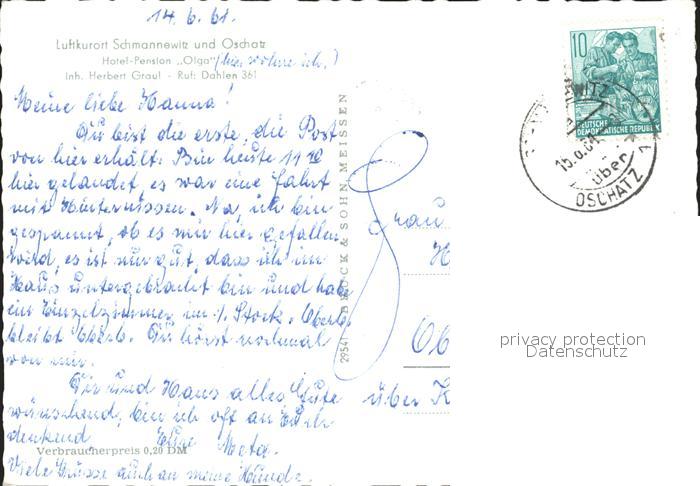 14.6.61.
Luftkurort Schmannewitz und Oschatz
Hotel-Pension „Olga" (hier wohne ich.)
Inh. Herbert Graul - Ruf: Dahlen 361
Meine liebe Hanna!
Du bist die erste, die Post
von hier erhält. Bin heute 11
hier gelandet, es war eine Fahrt
mit Hinternissen. Na, ich bin
gespannt, ob es mir hier gefallen
wird, es ist nur gut, dass ich im
Haus untergebracht bin und habe
ein Einzelzimmer im 1. Stock.
bleibt Du hörst nochmal
von mir.
Dir und Hans alles Gute
wünschend, bin ich oft an Euch
denkend Eure Meta.
Verbraucherpreis 0,20 DM
Viele Grüsse auch an meine Hunde.
29541 BROCK & SOHN, MEISSEN
Frau
H
Ob
über K
10
DEUTSCHE
DEMOKRATISCHE REPUBLIK
WITZ
15.6.61
über
OSCHATZ
privacy protection
Datenschutz